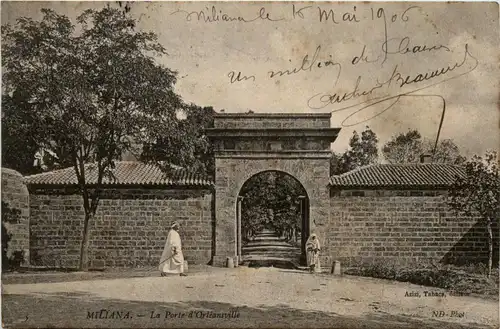 Miliana le 15 Mai 1906
Un million de
Beaumont
Azizi, Tabacs, éditeur
5 MILIANA. — La Porte d'Orléansville
ND. Phot